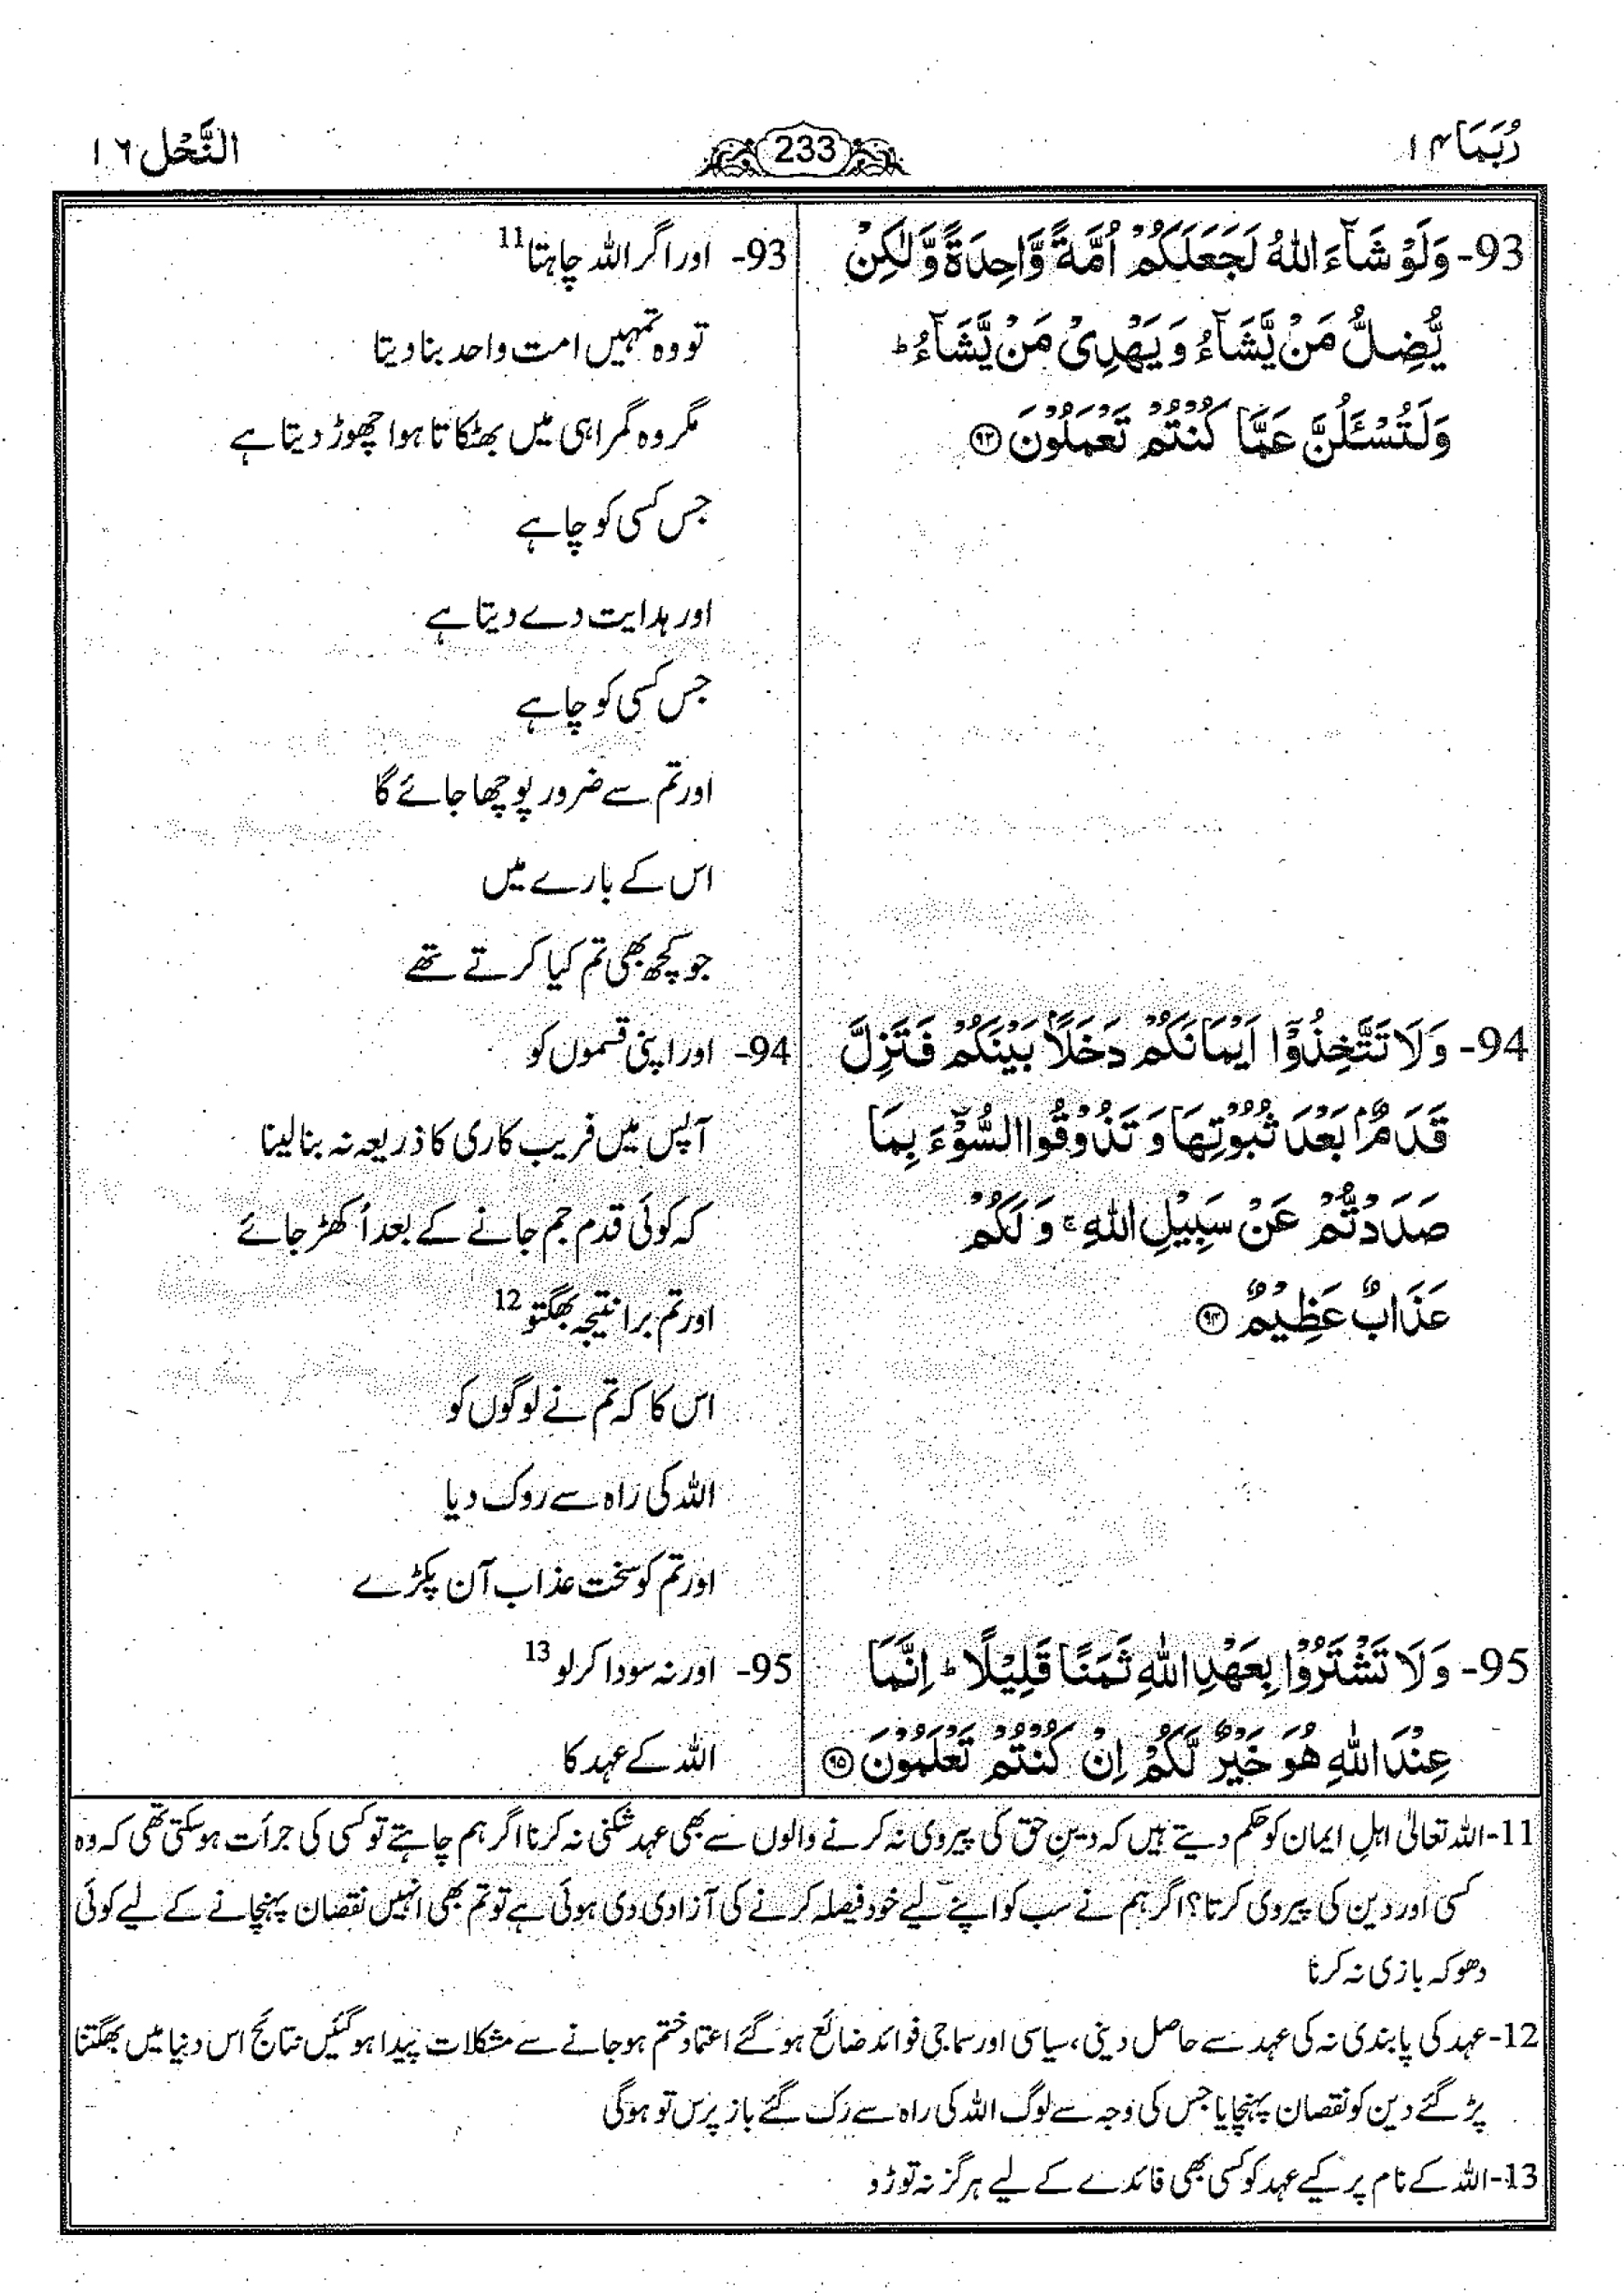 رُبَمَا ۱۴
233
النَّحْل ۱۶
93- وَلَوْ شَآءَ اللّٰهُ لَجَعَلَكُمْ اُمَّةً وَّاحِدَةً وَّلٰكِنْ
يُّضِلُّ مَنْ يَّشَآءُ وَ يَهْدِىْ مَنْ يَّشَآءُ ؕ
وَلَتُسْـَٔلُنَّ عَمَّا كُنْتُمْ تَعْمَلُوْنَ ﴿۹۳﴾
94- وَلَا تَتَّخِذُوْۤا اَيْمَانَكُمْ دَخَلًاۢ بَيْنَكُمْ فَتَزِلَّ
قَدَمٌۢ بَعْدَ ثُبُوْتِهَا وَ تَذُوْقُوا السُّوْٓءَ بِمَا
صَدَدْتُّمْ عَنْ سَبِيْلِ اللّٰهِ ۚ وَ لَكُمْ
عَذَابٌ عَظِيْمٌ ﴿۹۴﴾
95- وَلَا تَشْتَرُوْا بِعَهْدِ اللّٰهِ ثَمَنًا قَلِيْلًا ؕ اِنَّمَا
عِنْدَ اللّٰهِ هُوَ خَيْرٌ لَّكُمْ اِنْ كُنْتُمْ تَعْلَمُوْنَ ﴿۹۵﴾
93- اور اگر اللہ چاہتا 11
تو وہ تمہیں امت واحد بنا دیتا
مگر وہ گمراہی میں بھٹکاتا ہوا چھوڑ دیتا ہے
جس کسی کو چاہے
اور ہدایت دے دیتا ہے
جس کسی کو چاہے
اور تم سے ضرور پوچھا جائے گا
اس کے بارے میں
جو کچھ بھی تم کیا کرتے تھے
94- اور اپنی قسموں کو
آپس میں فریب کاری کا ذریعہ نہ بنا لینا
کہ کوئی قدم جم جانے کے بعد اُکھڑ جائے
اور تم برا نتیجہ بھگتو 12
اس کا کہ تم نے لوگوں کو
اللہ کی راہ سے روک دیا
اور تم کو سخت عذاب آن پکڑے
95- اور نہ سودا کر لو 13
اللہ کے عہد کا
11- اللہ تعالیٰ اہلِ ایمان کو حکم دیتے ہیں کہ دینِ حق کی پیروی نہ کرنے والوں سے بھی عہد شکنی نہ کرنا اگر ہم چاہتے تو کسی کی جرأت ہو سکتی تھی کہ وہ
کسی اور دین کی پیروی کرتا؟ اگر ہم نے سب کو اپنے لیے خود فیصلہ کرنے کی آزادی دی ہوئی ہے تو تم بھی انہیں نقصان پہنچانے کے لیے کوئی
دھوکہ بازی نہ کرنا
12- عہد کی پابندی نہ کی عہد سے حاصل دینی، سیاسی اور سماجی فوائد ضائع ہو گئے اعتماد ختم ہو جانے سے مشکلات پیدا ہو گئیں نتائج اس دنیا میں بھگتنا
پڑ گئے دین کو نقصان پہنچایا جس کی وجہ سے لوگ اللہ کی راہ سے رک گئے باز پرس تو ہو گی
13- اللہ کے نام پر کیے عہد کو کسی بھی فائدے کے لیے ہر گز نہ توڑو